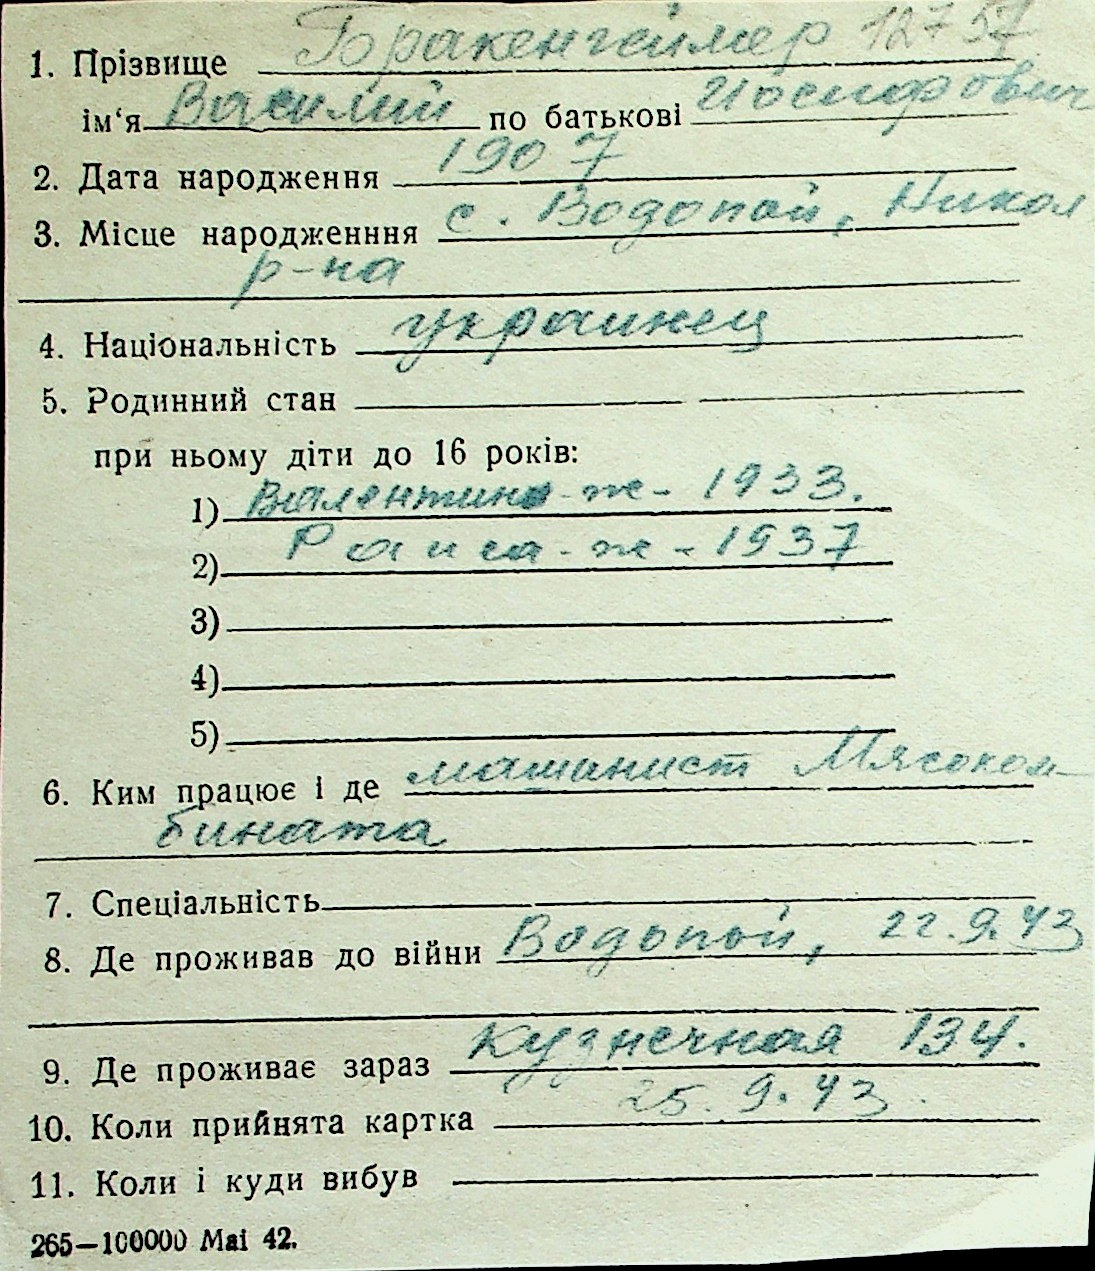 1. Прізвище Бракенгеймер 12757
ім‘я Василий по батькові Иосифович
2. Дата народження 1907
3. Місце народженння с. Водопой, Никол
р-на
4. Національність украинец
5. Родинний стан
при ньому діти до 16 років:
1) Валентина - ж - 1933.
2) Раиса - ж - 1937
3)
4)
5)
6. Ким працює і де машинист Мясоком-
бината
7. Спеціальність
8. Де проживав до війни Водопой, 22.9.43
9. Де проживає зараз Кузнечная 134.
10. Коли прийнята картка 25.9.43.
11. Коли і куди вибув
265—100000 Mai 42.